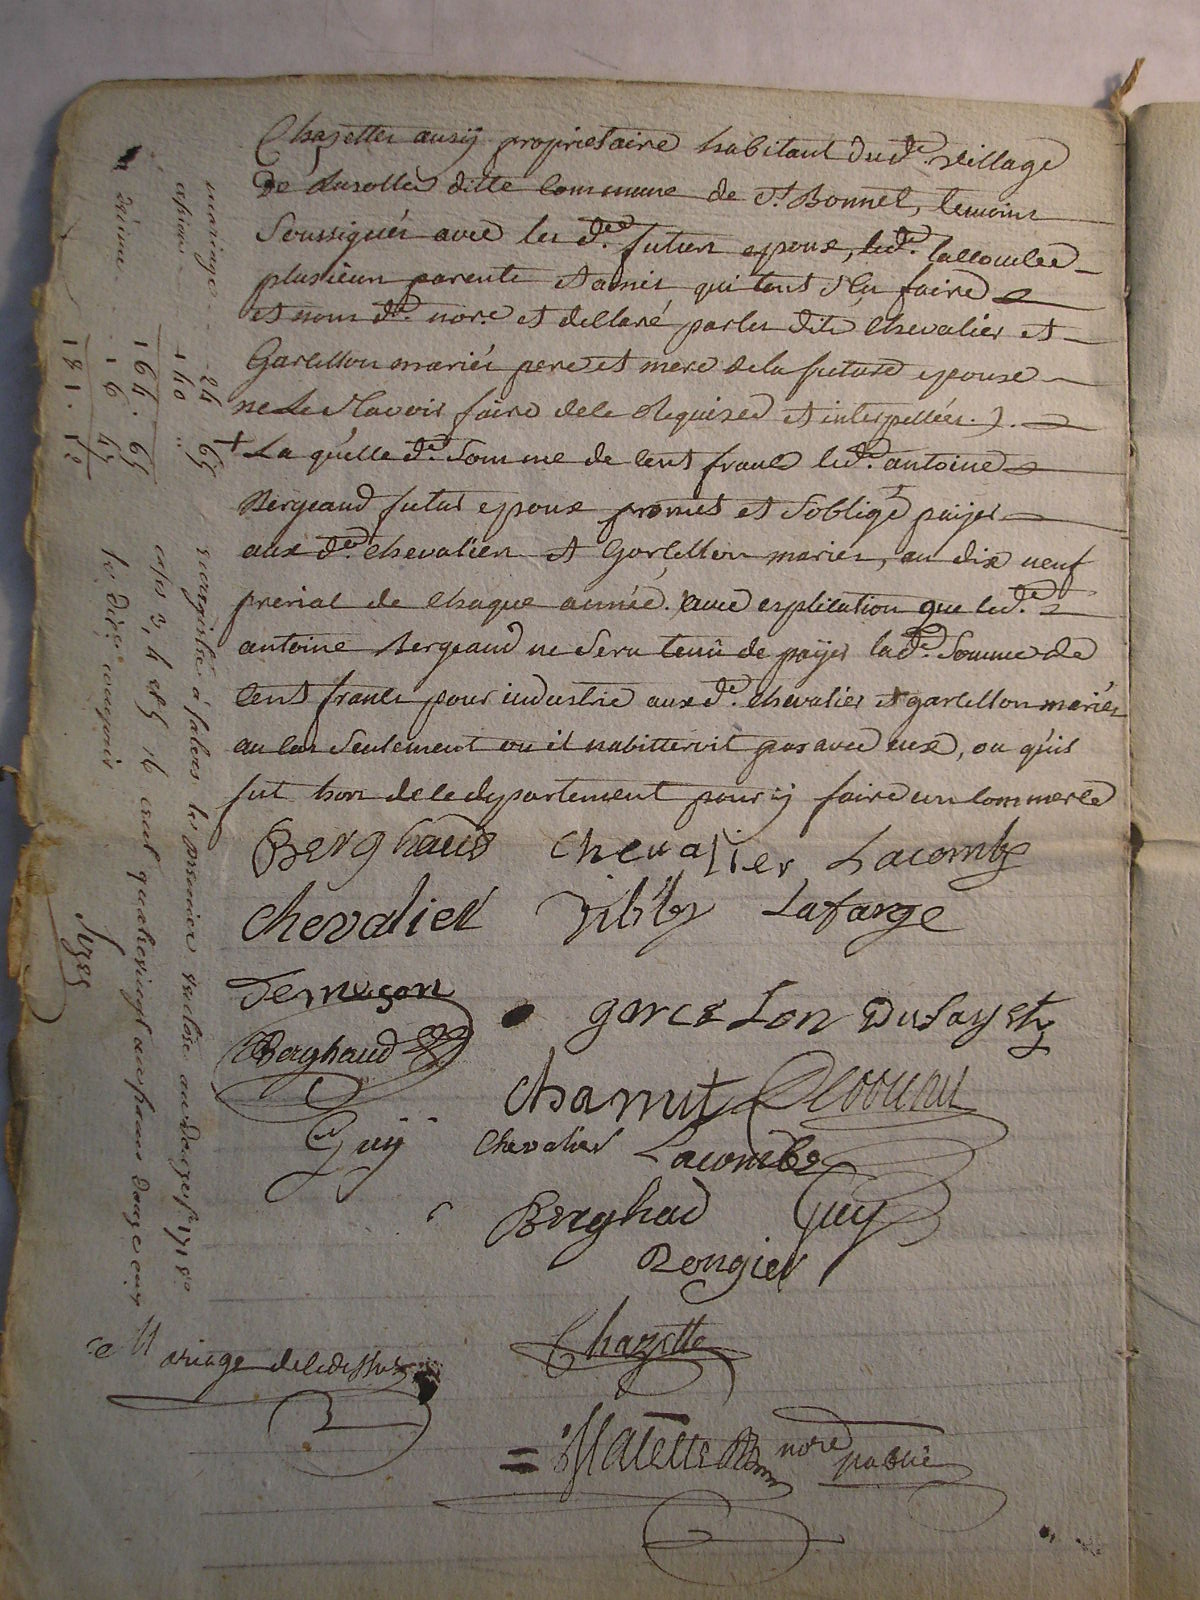 Chazettes ausÿ proprietaire habitant du dt. village
De Lusolles ditte Commune de St. Bonnet, temoins
Soussignés avec les dts. futurs epoux, led.
plusieurs parents et amis qui tous Sçu faire
et nous dt. nore. et déclaré par les dits Chevalier et
Garcellon mariés pere et mere de la future epouse
ne Le Sçavoir faire de le Requised et interpellés.).
+ La quelle de. Somme de Cent francs led. antoine
Bergeaud futur epoux promet et S'oblige payer
aux ds. Chevalier et Garcellon mariés, au dix neuf
prerial de Chaque année. avec explication que led.
antoine Bergeaud ne Sera tenû de payer lad. Somme de
Cent francs pour industrie aux d. Chevalier et garcellon mariés
au Cas Seulement ou il nabitteroit pas avec eux, ou quis
fut hors de le departement pour ÿ faire un Commerce
Berghaud Chevalier Lacombe
Chevalier Lafarge
Demuson garcelon Dufayet
Berghaud
Chamut
Guÿ Chevalier Lacombe
Berghad Guÿ
Rongier
Chazette
Mariage de le dessus
= nore public
mariage - 24 65
140 ..
164. 65
16 47
181. 12
enregistré à salers le premier an douze fo. 171 Ro
cases 3, 4 et 5 cent quatrevingt un francs douze cmes
le dixe. compris